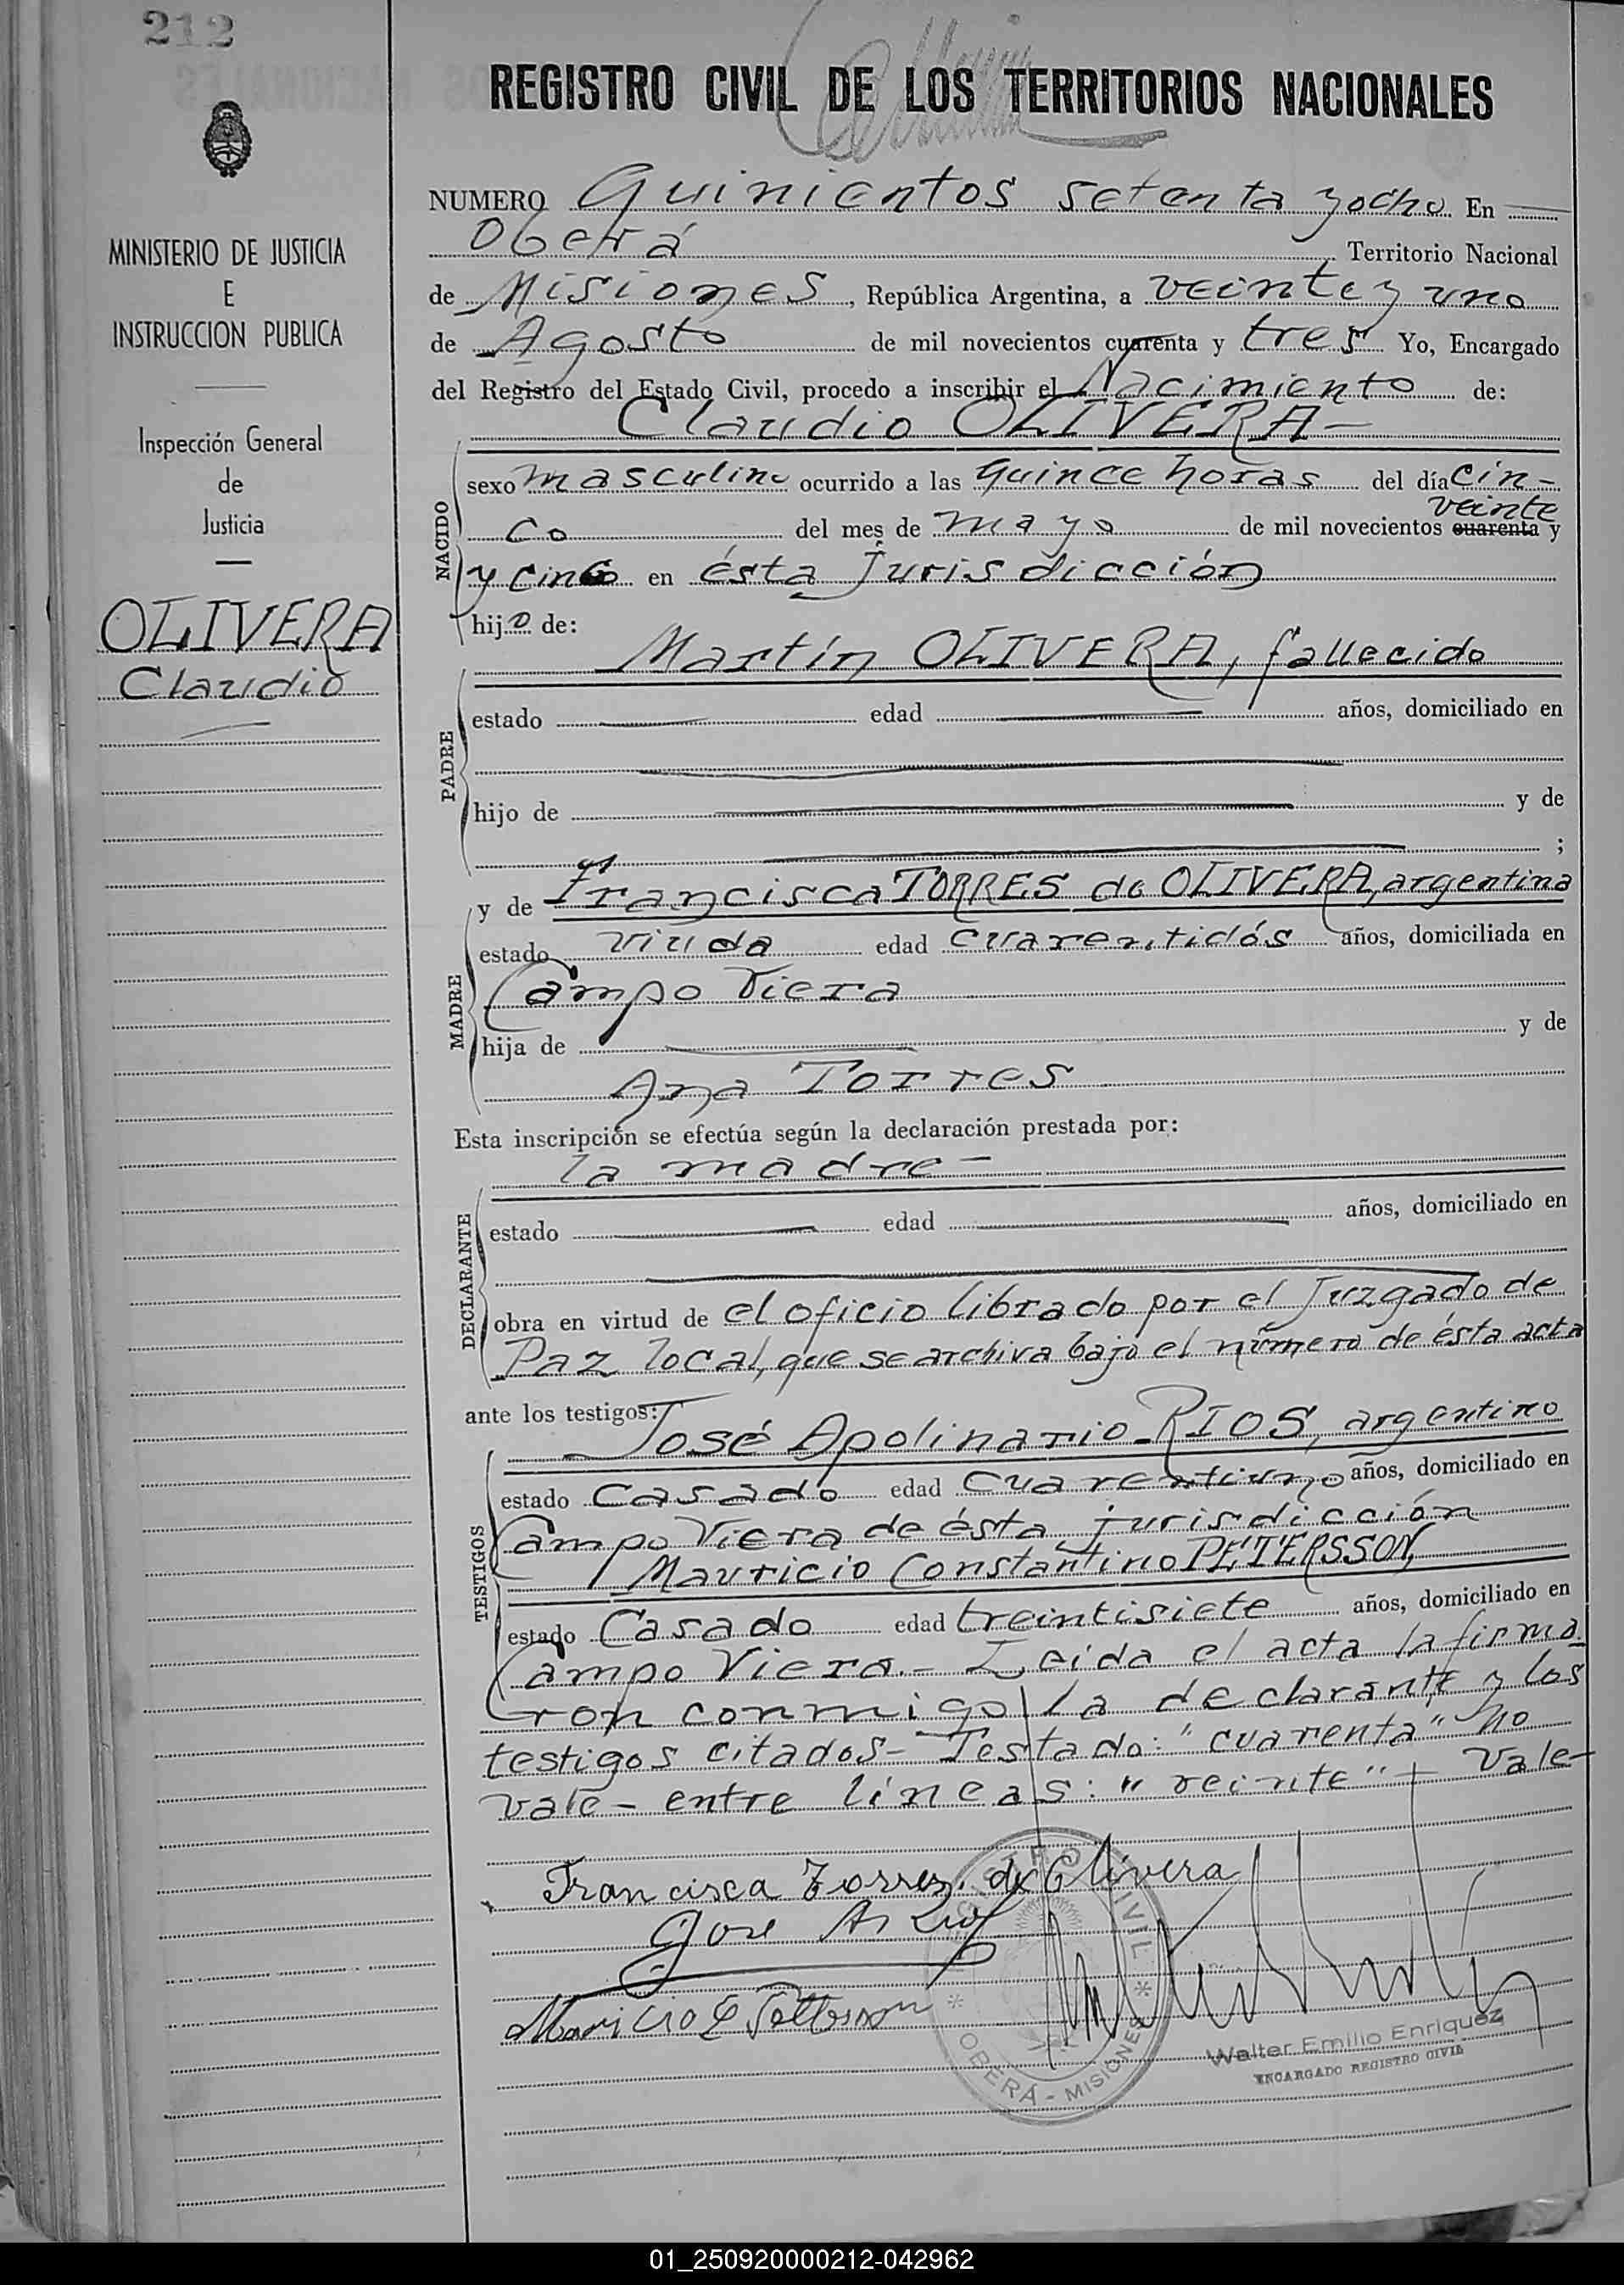 212
REGISTRO CIVIL DE LOS TERRITORIOS NACIONALES
MINISTERIO DE JUSTICIA
E
INSTRUCCION PUBLICA
Inspección General
de
Justicia
OLIVERA
Claudio
NUMERO Quinientos setenta y ocho En
Oberá Territorio Nacional
de Misiones, República Argentina, a veinte y uno
de Agosto de mil novecientos cuarenta y tres Yo, Encargado
del Registro del Estado Civil, procedo a inscribir el Nacimiento de:
Claudio OLIVERA-
NACIDO
sexo masculino ocurrido a las quince horas del día cin-
veinte
co del mes de mayo de mil novecientos cuarenta y
y cinco en ésta Jurisdicción
hijo de:
Martín OLIVERA, fallecido
PADRE
estado edad años, domiciliado en
hijo de y de
;
y de Francisca TORRES de OLIVERA, argentina
MADRE
estado viuda edad cuarentidós años, domiciliada en
Campo Viera
hija de y de
Ana Torres
Esta inscripción se efectúa según la declaración prestada por:
la madre-
DECLARANTE
estado edad años, domiciliado en
obra en virtud de el oficio librado por el Juzgado de
Paz local, que se archiva bajo el número de ésta acta
ante los testigos:
José Apolinario RIOS, argentino
TESTIGOS
estado Casado edad cuarentiuno años, domiciliado en
Campo Viera de ésta jurisdicción
Mauricio Constantino PETERSSON,
estado Casado edad treintisiete años, domiciliado en
Campo Viera.- Leida el acta la firma-
ron conmigo la declarante y los
testigos citados- Testado: "cuarenta" no
vale- entre líneas: "veinte"- vale-
Francisca Torres de Olivera
Jose A Rios
Mauricio C Petterson
REGISTRO CIVIL
OBERÁ - MISIONES
Walter Emilio Enriquez
ENCARGADO REGISTRO CIVIL
01_250920000212-042962